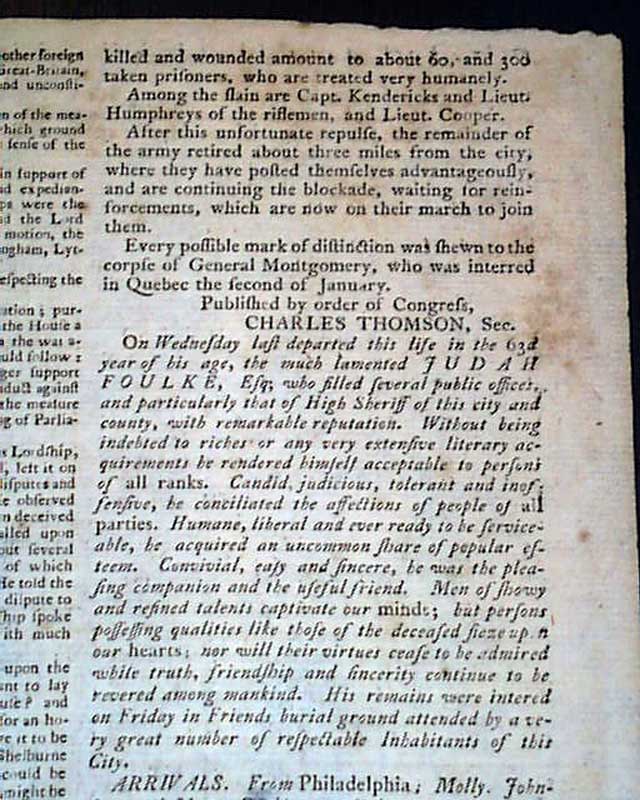 other foreign
Great-Britain,
and unconsti-
en of the mea-
which ground
sense of the
in support of
nd expedien-
ps were the
nd the Lord
motion, the
ngham, Lyt-
respecting the
ation; pur-
the House a
the was a-
ould follow:
ger support
nduct against
the measure
ng of Parlia-
s Lordship,
left it on
disputes and
e observed
n deceived
ailed upon
out several
of which
He told the
dispute to
ship spoke
ith much
upon the
ant to lay
use? and
for an ho-
re it to be
Shelburne
could be
might be
killed and wounded amount to about 60, and 300
taken prisoners, who are treated very humanely.
Among the slain are Capt. Kendericks and Lieut.
Humphreys of the riflemen, and Lieut. Cooper.
After this unfortunate repulse, the remainder of
the army retired about three miles from the city,
where they have posted themselves advantageously,
and are continuing the blockade, waiting for rein-
forcements, which are now on their march to join
them.
Every possible mark of distinction was shewn to the
corpse of General Montgomery, who was interred
in Quebec the second of January.
Published by order of Congress,
CHARLES THOMSON, Sec.
On Wednesday last departed this life in the 63d
year of his age, the much lamented JUDAH
FOULKE, Esq; who filled several public offices,
and particularly that of High Sheriff of this city and
county, with remarkable reputation. Without being
indebted to riches or any very extensive literary ac-
quirements he rendered himself acceptable to persons
of all ranks. Candid, judicious, tolerant and inof-
fensive, he conciliated the affections of people of all
parties. Humane, liberal and ever ready to be service-
able, he acquired an uncommon share of popular es-
teem. Convivial, easy and sincere, he was the plea-
sing companion and the useful friend. Men of showy
and refined talents captivate our minds; but persons
possessing qualities like those of the deceased sieze up n
our hearts; nor will their virtues cease to be admired
while truth, friendship and sincerity continue to be
revered among mankind. His remains were intered
on Friday in Friends burial ground attended by a ve-
ry great number of respectable Inhabitants of this
City.
ARRIVALS. From Philadelphia; Molly. John-